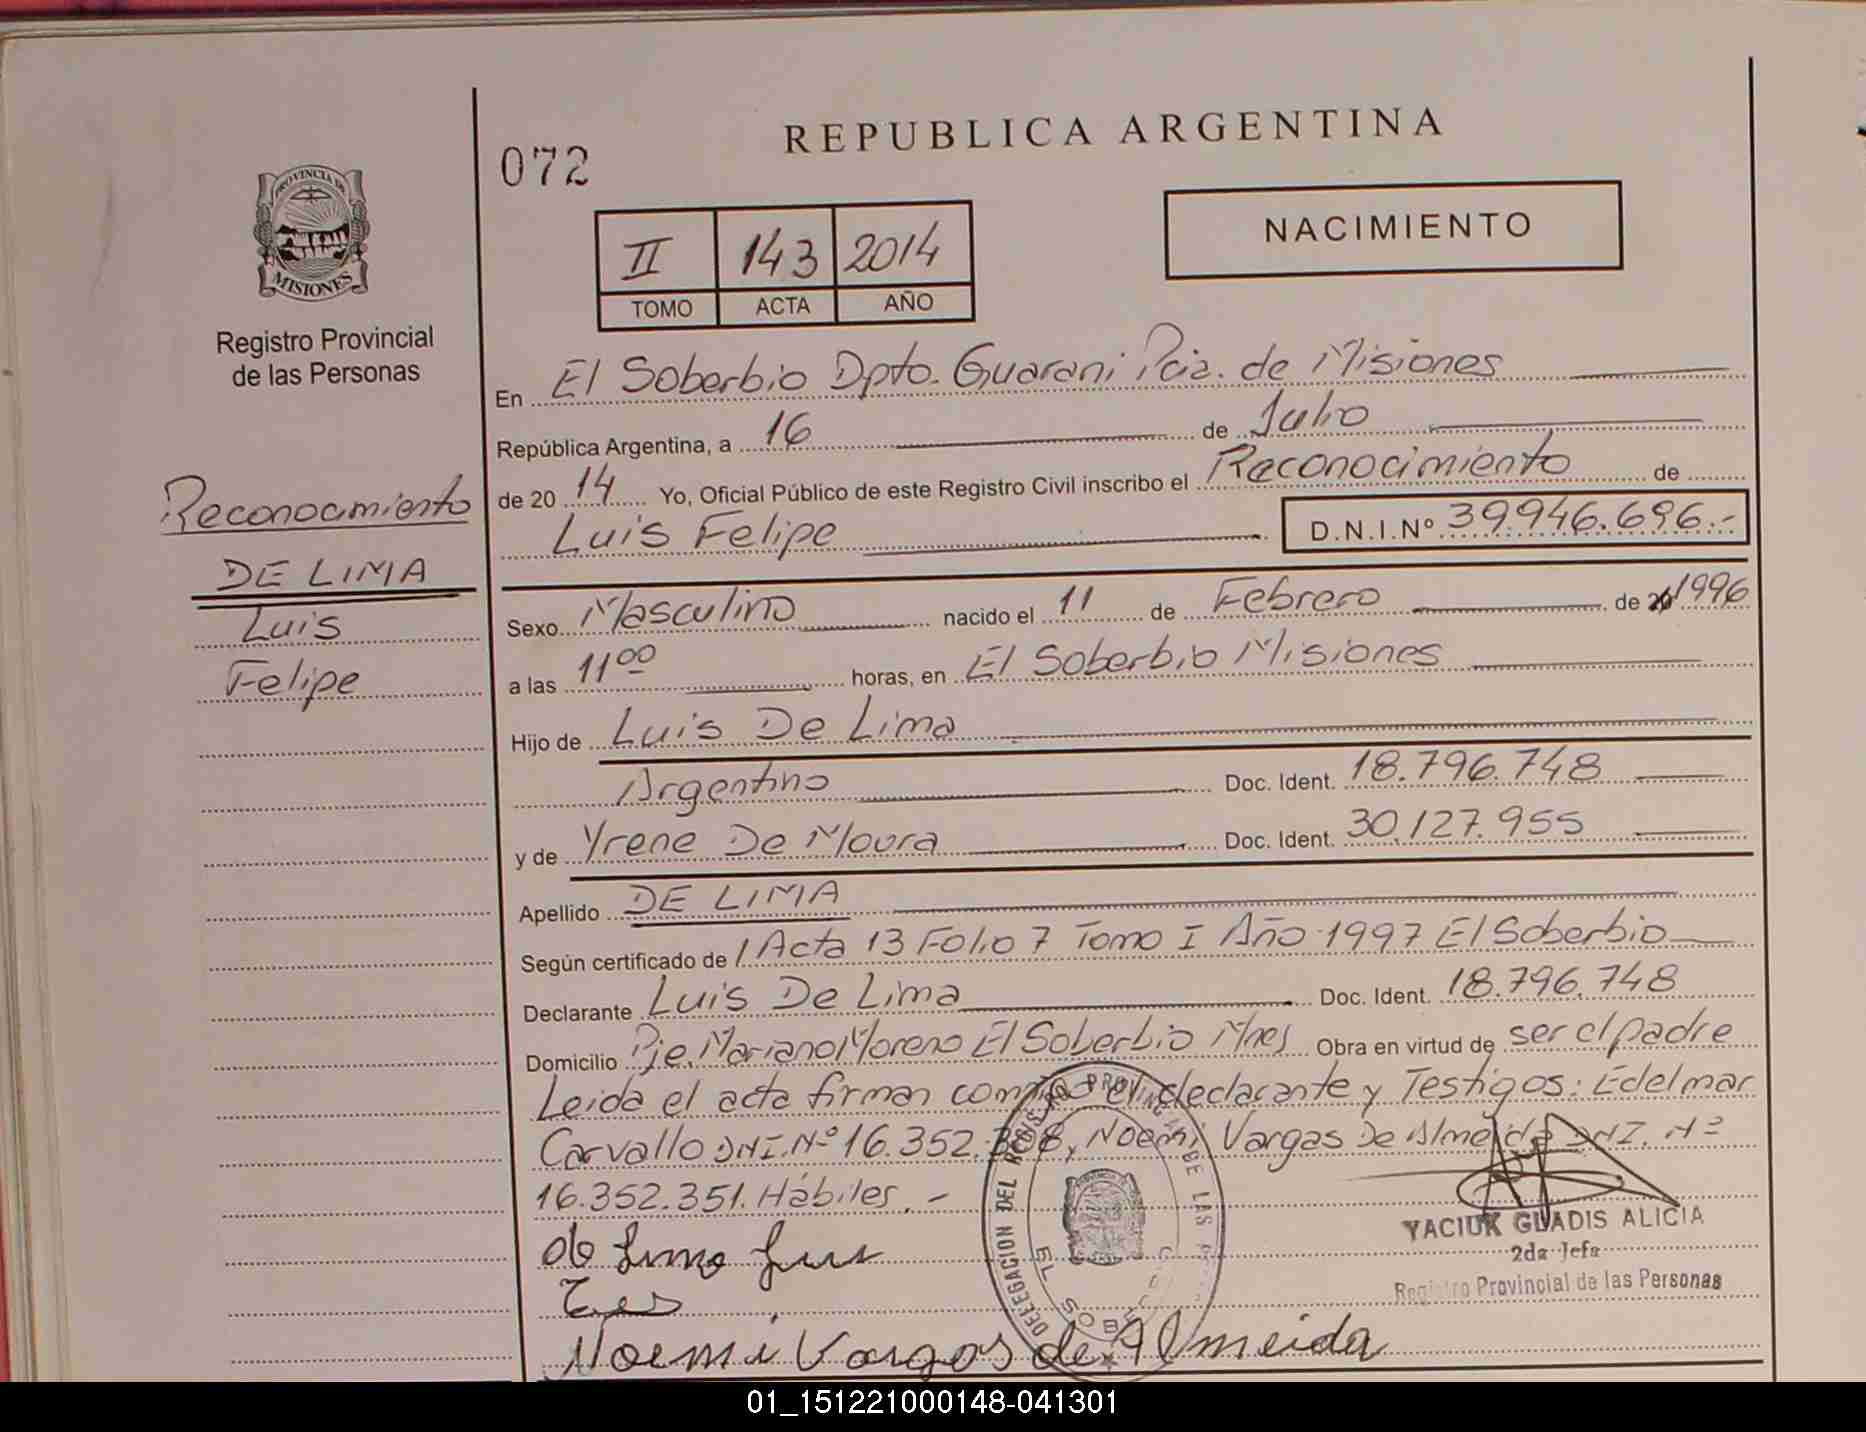 REPUBLICA ARGENTINA
072
NACIMIENTO
PROVINCIA DE
MISIONES
Registro Provincial
de las Personas
II 143 2014
TOMO ACTA AÑO
En El Soberbio Dpto. Guarani Pcia. de Misiones
República Argentina, a 16 de Julio
de 20 14 Yo, Oficial Público de este Registro Civil inscribo el Reconocimiento de
Luis Felipe D.N.I.Nº 39.946.696.-
Reconocimiento
DE LIMA
Luis
Felipe
Sexo Masculino nacido el 11 de Febrero de 1996
a las 11ºº horas, en El Soberbio Misiones
Hijo de Luis De Lima
Argentino Doc. Ident. 18.796.748
y de Yrene De Moura Doc. Ident. 30.127.955
Apellido DE LIMA
Según certificado de Acta 13 Folio 7 Tomo I Año 1997 El Soberbio
Declarante Luis De Lima Doc. Ident. 18.796.748
Domicilio Pje. Mariano Moreno El Soberbio Mnes Obra en virtud de ser el padre
Leida el acta firman conmigo el declarante y Testigos: Edelmar
Carvallo DNI.Nº 16.352.308, Noemi Vargas De Almeida DNI. Nº
16.352.351. Hábiles.-
de Lima Luis
Noemi Vargas de Almeida
DELEGACION DEL REGISTRO PROVINCIAL DE LAS
EL SOBERBIO
YACIUK GLADIS ALICIA
2da Jefa
Registro Provincial de las Personas
01_151221000148-041301